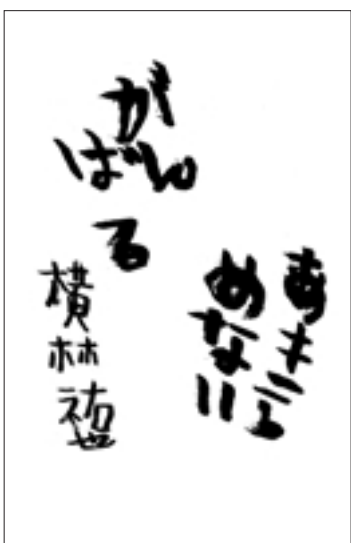 あきら
めない
がん
ばる
横林祐